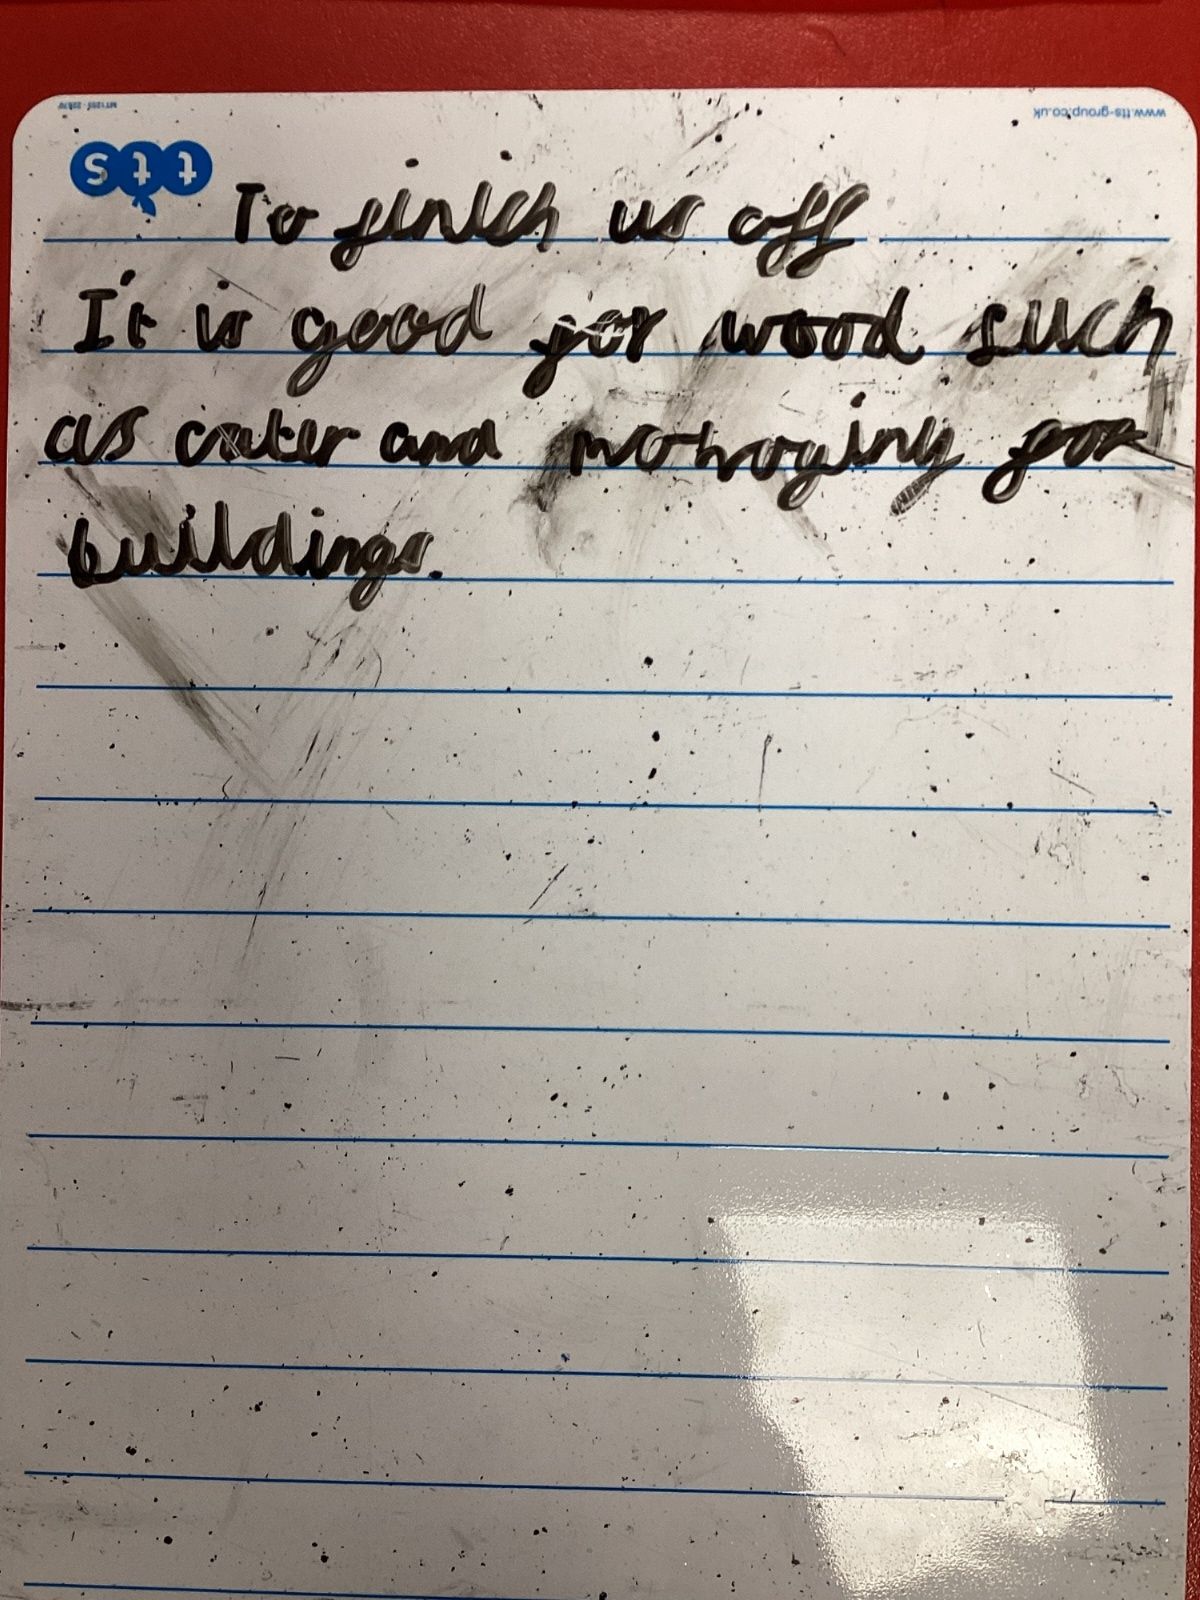 MT1265 - 22870
www.tts-group.co.uk
tts
To finish us off
It is good for wood such
as and for
buildings.